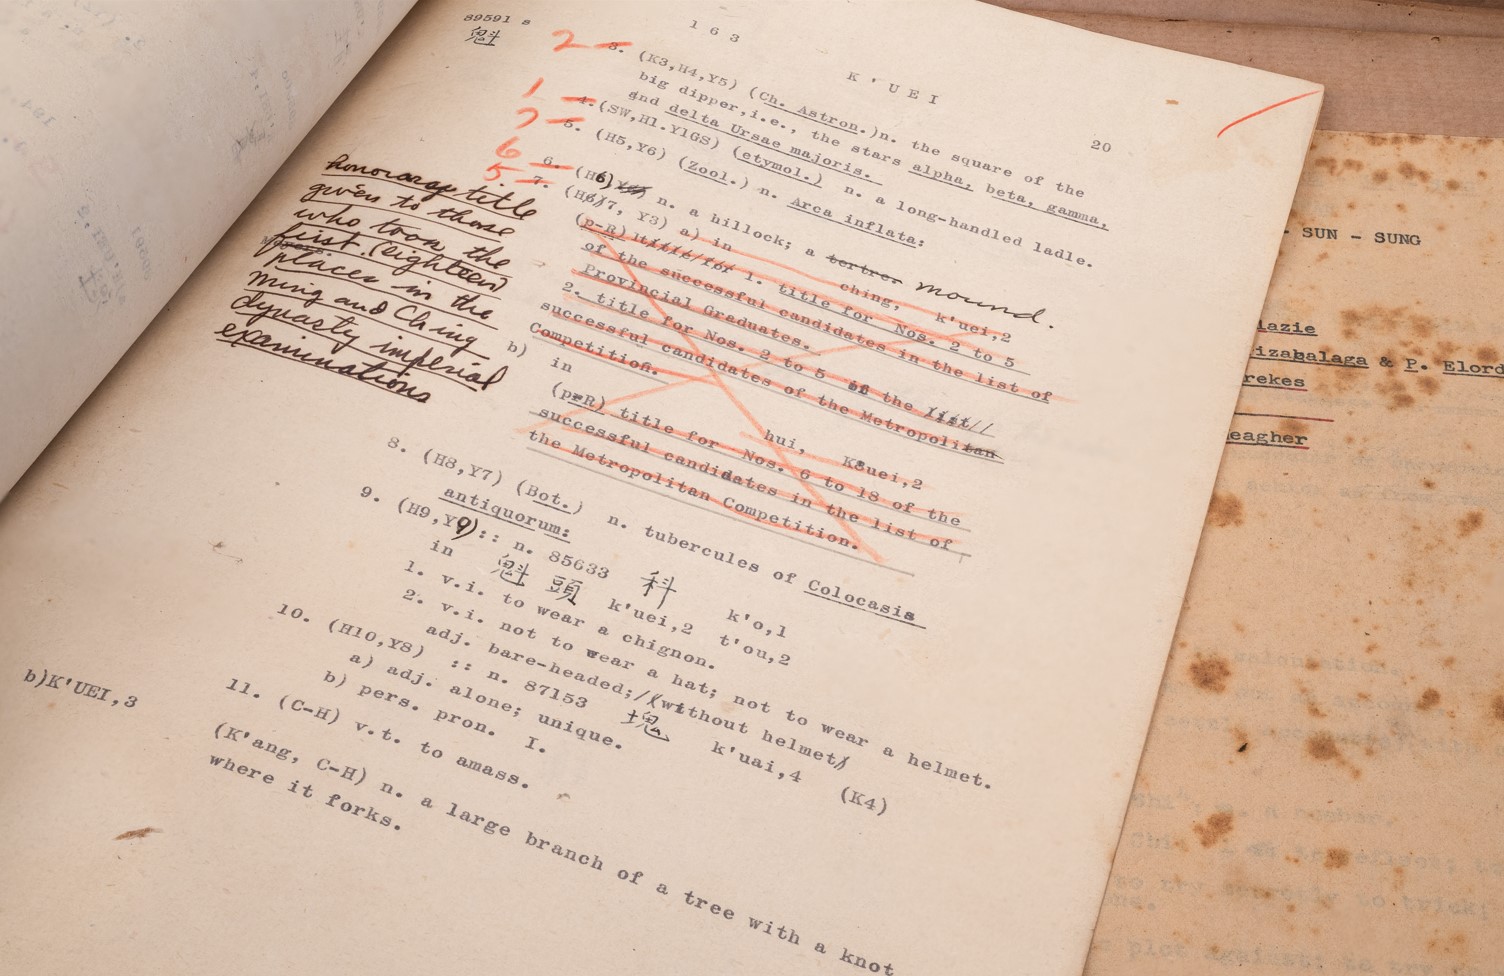 89591 s
163
K'UEI
20
魁
2 — 3. (K3,H4,Y5) (Ch. Astron.)n. the square of the
big dipper,i.e., the stars alpha, beta, gamma,
and delta Ursae majoris.
1 — 4.(SW,H1.Y1GS) (etymol.) n. a long-handled ladle.
7 — 5. (H5,Y6) (Zool.) n. Arca inflata:
6 — 6. (H6) n. a hillock; a tertre. mound.
5 — 7. (H6/7, Y3) a) in ching, k'uei,2
(p-R) 1. title for Nos. 2 to 5
of the successful candidates in the list of
Provincial Graduates.
2. title for Nos. 2 to 5 of the list
successful candidates of the Metropolitan
Competition.
b) in hui, K'uei,2
(p-R) title for Nos. 6 to 18 of the
successful candidates in the list of
the Metropolitan Competition.
honorary title
given to those
who took the
first (eighteen)
places in the
ming and Ch'ing
dynasty imperial
examinations
8. (H8,Y7) (Bot.) n. tubercules of Colocasis
antiquorum:
9. (H9,Y9):: n. 85633 科 k'o,1
in 魁頭 k'uei,2 t'ou,2
1. v.i. to wear a chignon.
2. v.i. not to wear a hat; not to wear a helmet.
adj. bare-headed;/(without helmet)
10. (H10,Y8) :: n. 87153 塊 k'uai,4 (K4)
a) adj. alone; unique.
b) pers. pron. I.
11. (C-H) v.t. to amass.
b)K'UEI,3 (K'ang, C-H) n. a large branch of a tree with a knot
where it forks.
- SUN - SUNG
lazie
izabalaga & P. Elord
rekes
eagher